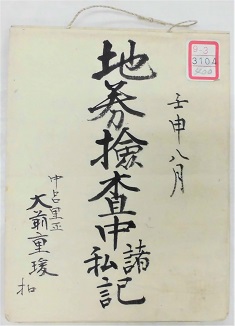 壬申八月
地券検査中諸私記
中占里正
大前重瑗
扣
3104